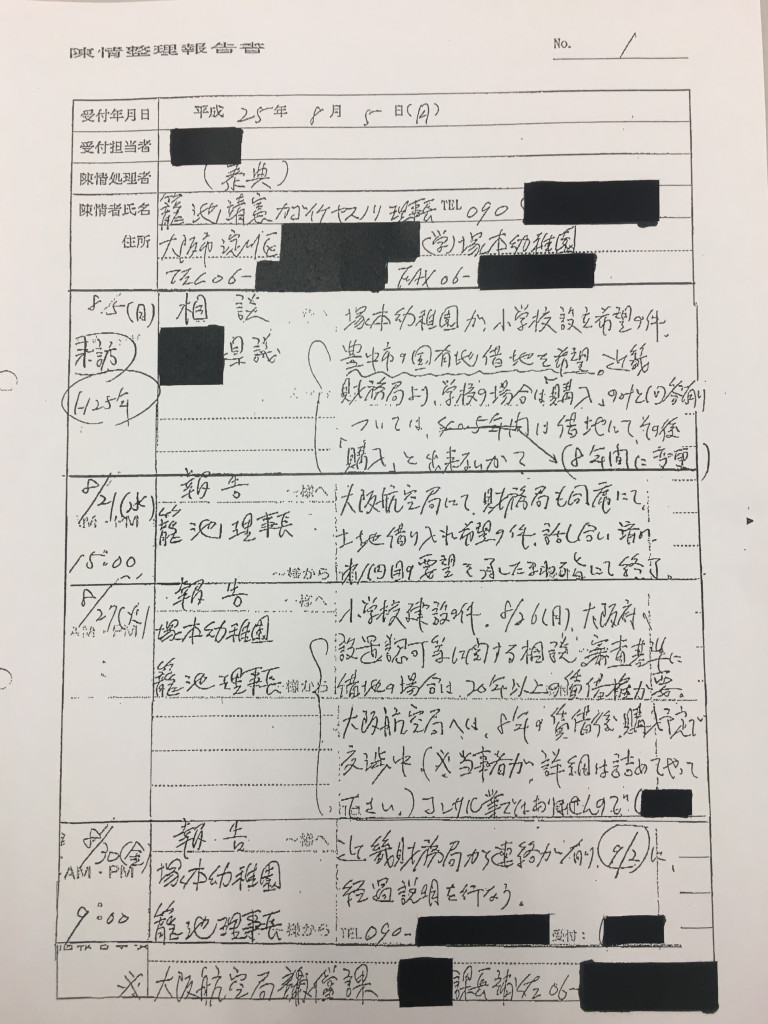 陳情整理報告書
No. 1
受付年月日 平成 25年 8月 5日(月)
受付担当者
陳情処理者 (泰典)
陳情者氏名 籠池靖憲 カゴイケヤスノリ 理事長 TEL 090
住所 大阪市淀川区 (学)塚本幼稚園
TEL 06- FAX 06-
8.5(月) 相談
来訪 県議
塚本幼稚園が、小学校設立希望の件、
豊中市の国有地借地を希望。近畿
財務局より、学校の場合は「購入」のみと回答有り
ついては、 は借地にて、その後
「購入」と出来ないかて (8年間に変更)
8/21(水) 報告 〜様へ
AM PM 籠池理事長
15:00 〜様から
大阪航空局にて、財務局も同席にて、
土地借り入れ希望の件、話し合い
て終了。
8/27(火) 報告 〜様へ
AM PM 塚本幼稚園
: 籠池理事長 様から
小学校建設の件、8/26(月)、大阪府、
設置認可等に関する相談、審査基準に
借地の場合は、20年以上の賃借権が要。
大阪航空局へは、8年の賃借後、購入予定で
交渉中、(※当事者が、詳細は詰めてやって
下さい。)コンサル業ではありませんので(
8/30(金) 報告 〜様へ
AM・PM 塚本幼稚園
9:00 籠池理事長 様から
近畿財務局から連絡が有り、9/2に、
経過説明を行なう。
TEL 090- 受付:
※大阪航空局 課 課長補佐 06-